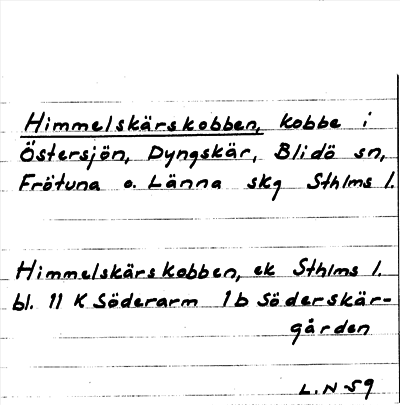 Himmelskärskobben, kobbe i
Östersjön, Dyngskär, Blidö sn,
Frötuna o. Länna skg Sthlms l.
Himmelskärskobben, ek Sthlms l.
bl. 11 K Söderarm 1b Söderskär-
gården
L.N 59